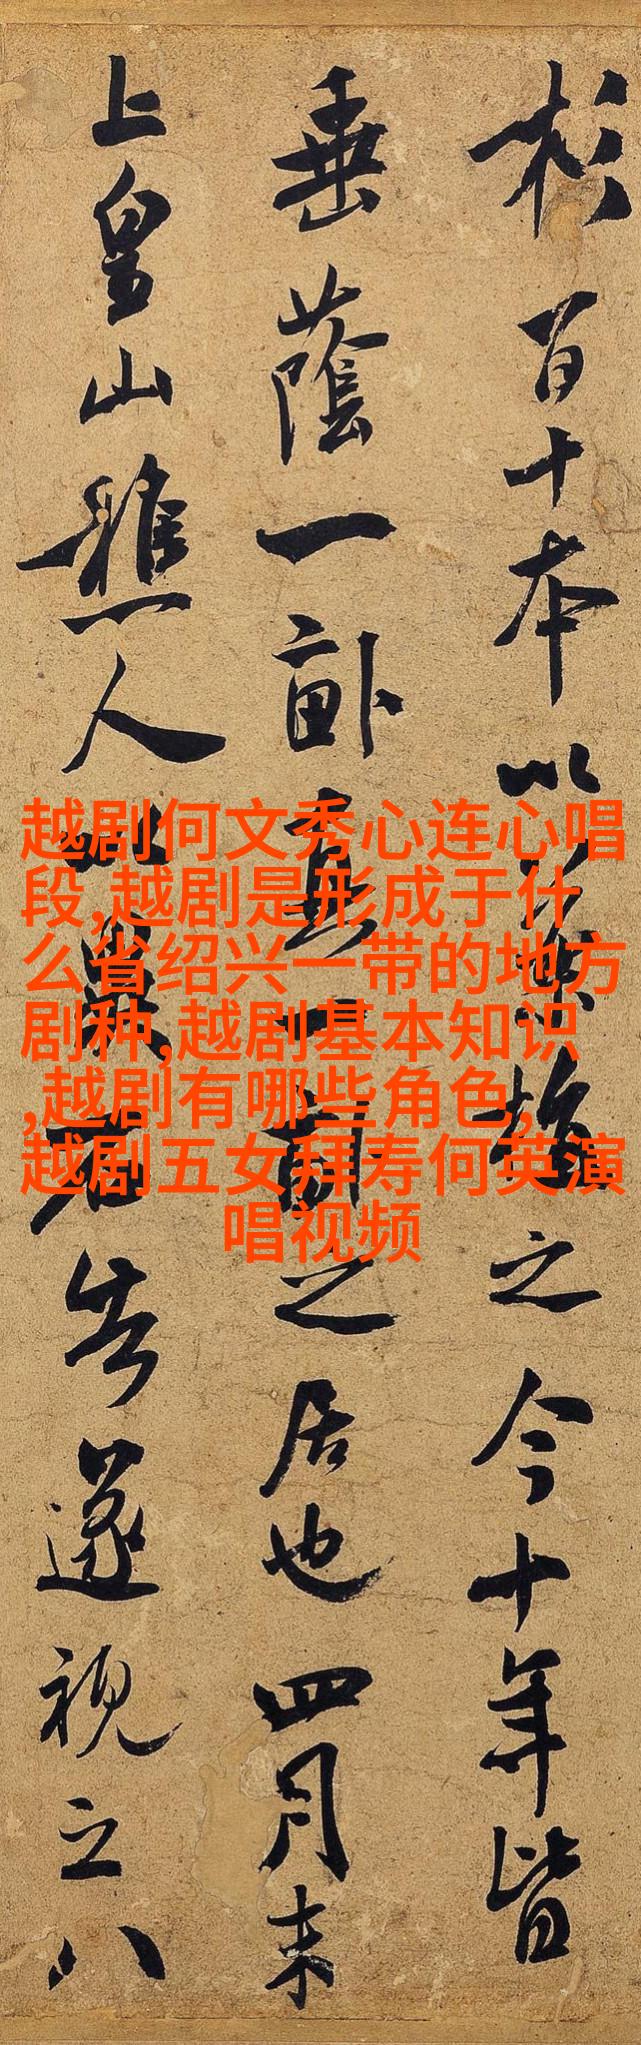 杉百十本以之今十年皆
垂蔭一畝真一畝之居也四月末
上皇山樵人以異石告遂視之八
越剧何文秀心连心唱
段,越剧是形成于什
么省绍兴一带的地方
剧种,越剧基本知识
,越剧有哪些角色,
越剧五女拜寿何英演
唱视频